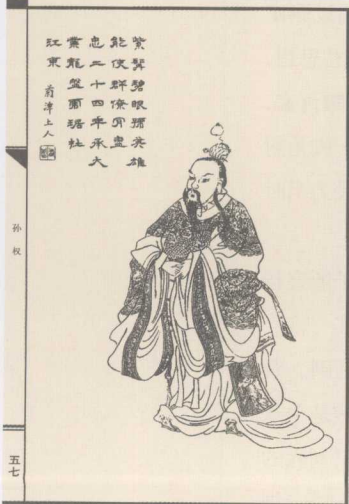 紫髯碧眼號英雄
能使群僚肯盡
忠二十四年承大
業龍盤虎踞在
江東 津上人
孙权
五七